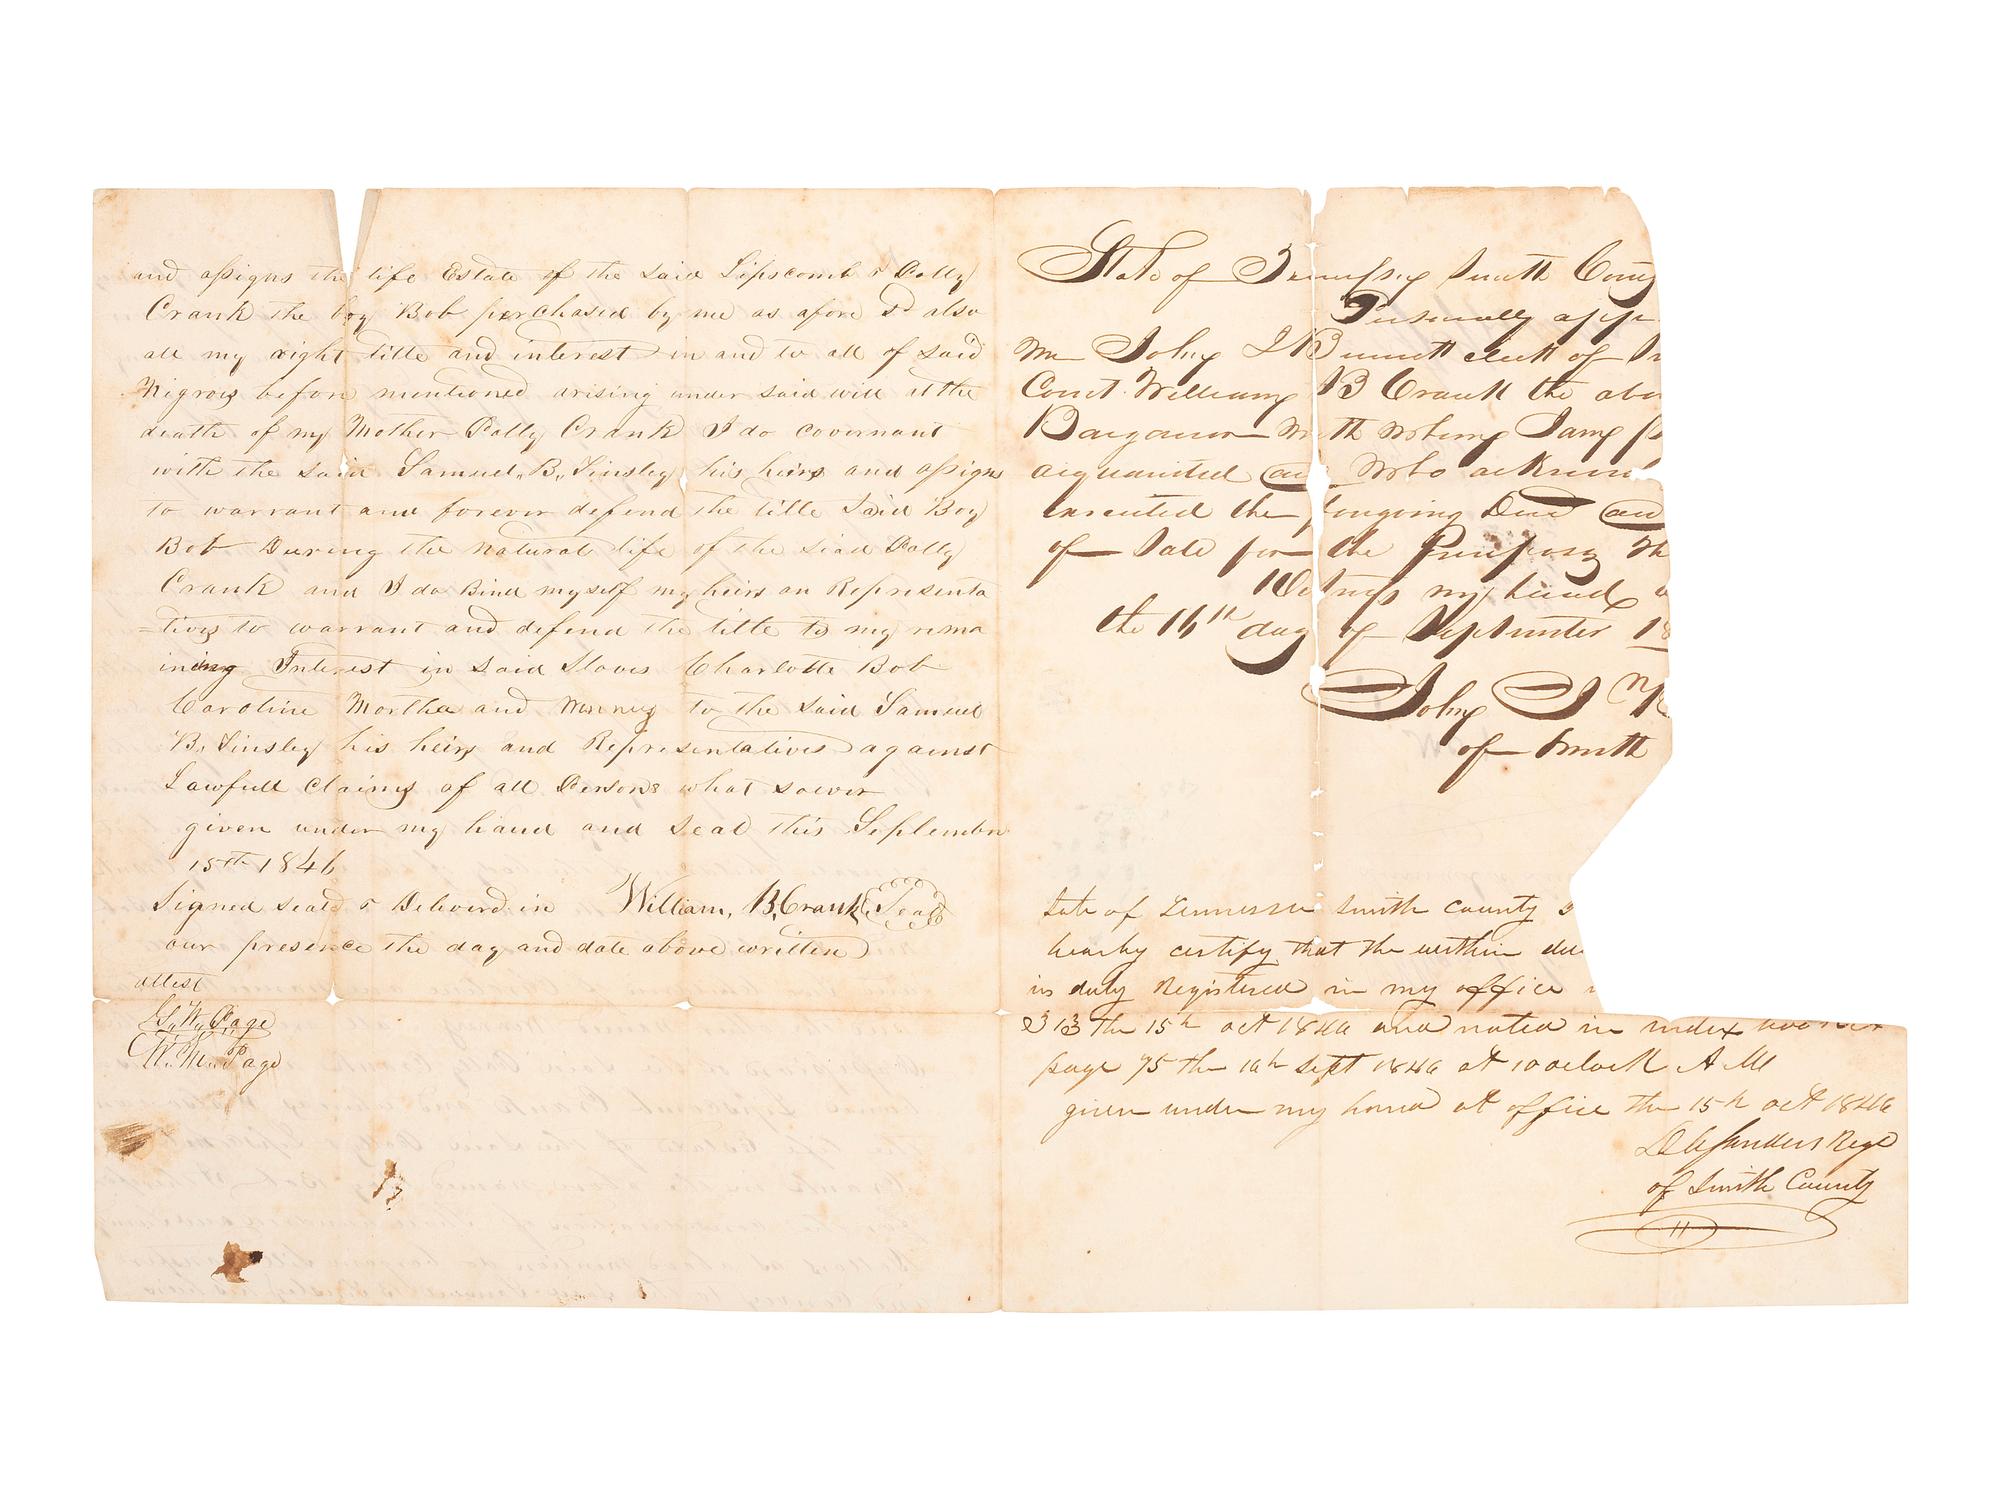 and assigns the life Estate of the said Lipscomb & Polly
Crank the boy Bob purchased by me as afore sd also
all my right title and interest in and to all of said
Nigroes before mentioned arising under said will at the
death of my Mother Polly Crank I do covernant
with the said Samuel, B, Tinsley his heirs and assigns
to warrant and forever defend the title said Boy
Bob During the natural life of the siad Polly
Crank and I do Bind myself my heirs on Representa
=tives to warrant and defend the title to my rema
ining Interest in said Slaves Charlotte Bob
Caroline Mortha and to the said Samuel
B, Tinsley his heirs and Representatives against
Lawfull claims of all Persons what soever
given under my hand and seal this September
15th 1846
Signed seald & Deliverd in William, B, Crank Seal
our presence the day and date above written
attest
G, W, Page
W. M. Page
State of Tennessey Smith County
Personally appe
me John J Burnett clerk of
Court William B Crank the abo
Bargainor with whome I am p
acquainted and who acknow
executed the foregoing Deed and
of Sale for the Purposes th
Witness my hand
the 16th day of September 18
John J
of Smith
State of Tennessee Smith County S
hearby certify that the within de
is duly Registered in my office
313 the 15h oct 1846 and noted in index book
page 75 the 16h Sept 1846 at 10 oclock A M
given under my hand at office the 15h oct 1846
Sanders Regr
of Smith County